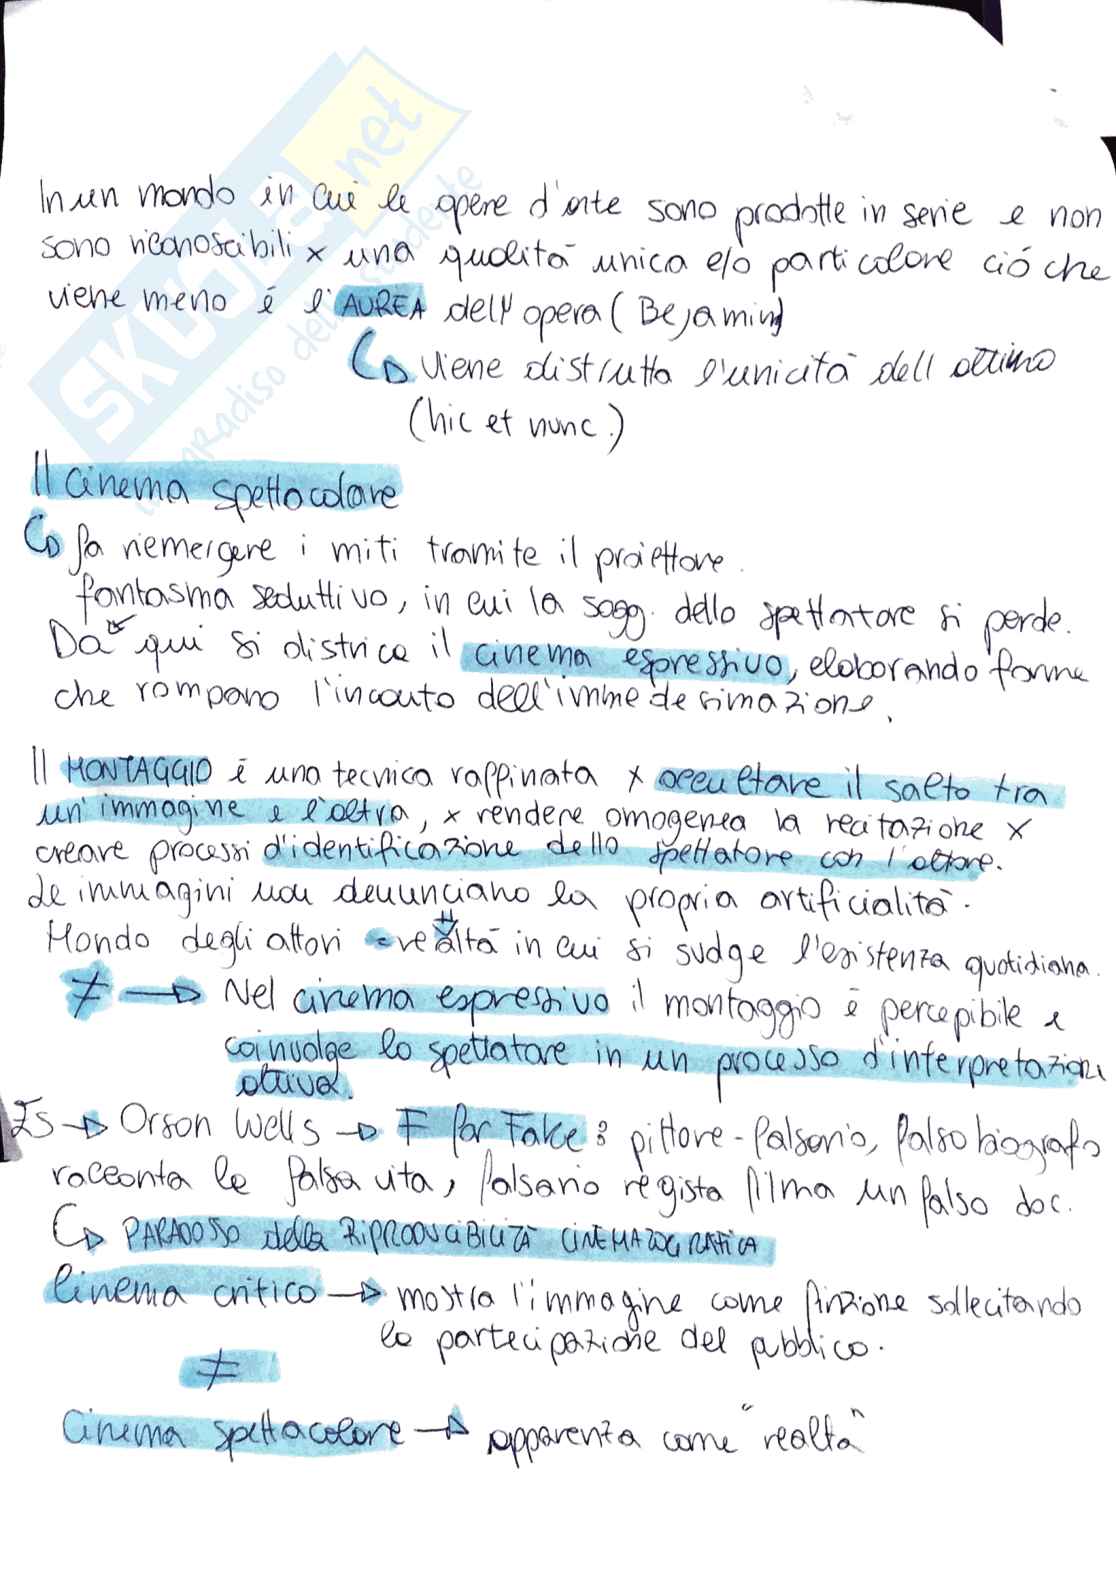 SKUOLA.net
il paradiso dello studente
In un mondo in cui le opere d'arte sono prodotte in serie e non
sono riconoscibili x una qualità unica e/o particolare ciò che
viene meno è l'AUREA dell'opera (Bejamin)
↳ Viene distrutta l'unicità dell'attimo
(hic et nunc.)
Il cinema spettacolare
↳ fa riemergere i miti tramite il proiettore.
fantasma seduttivo, in cui la sogg. dello spettatore si perde.
Da qui si districa il cinema espressivo, elaborando forme
che rompano l'incanto dell'immedesimazione.
Il MONTAGGIO è una tecnica raffinata x occultare il salto tra
un'immagine e l'altra, x rendere omogenea la recitazione x
creare processi d'identificazione dello spettatore con l'attore.
Le immagini non denunciano la propria artificialità.
Mondo degli attori = realtà in cui si svolge l'esistenza quotidiana.
≠ → Nel cinema espressivo il montaggio è percepibile e
coinvolge lo spettatore in un processo d'interpretazione
attiva.
Es → Orson Wells → F for Fake: pittore-falsario, falso biografo
racconta le falsa vita, falsario regista filma un falso doc.
↳ PARADOSSO della RIPRODUCIBILITÀ CINEMATOGRAFICA
Cinema critico → mostra l'immagine come finzione sollecitando
la partecipazione del pubblico.
≠
Cinema spettacolare → apparenza come "realtà"